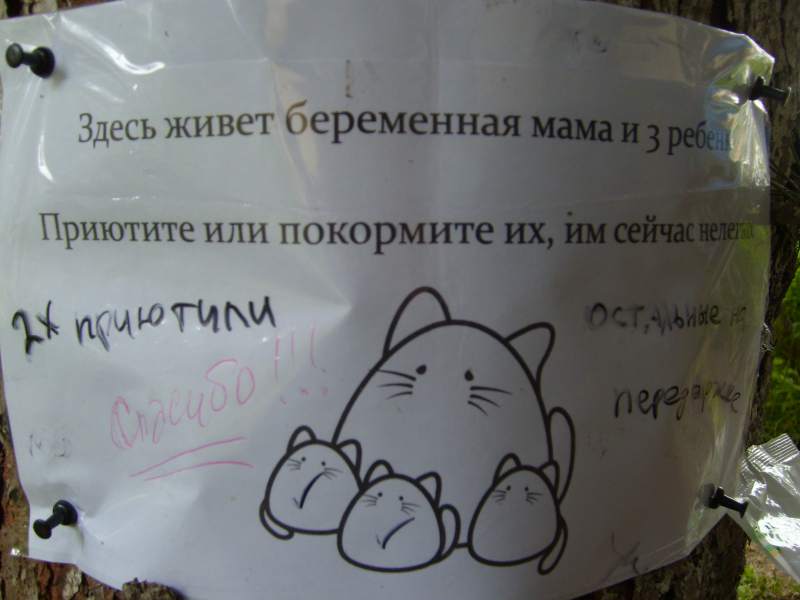 Здесь живет беременная мама и 3 ребенк
Приютите или покормите их, им сейчас нелегко
2х приютили
Спасибо!!!
остальные на
передержке